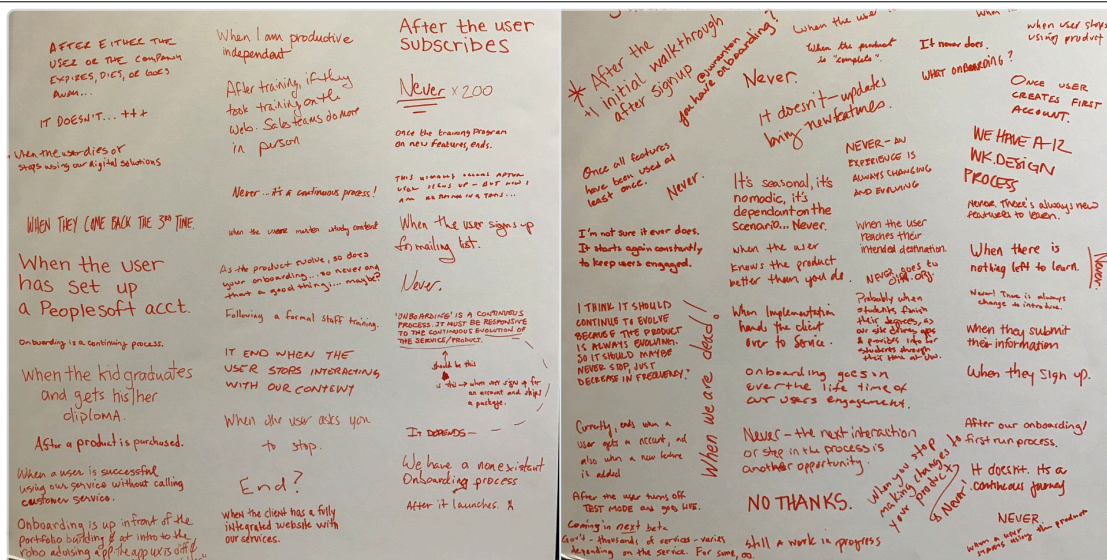 AFTER EITHER THE
USER OR THE COMPANY
EXPIRES, DIES, OR GOES
AWAY...
IT DOESN'T... +++
When the user dies or
stops using our digital solutions
WHEN THEY COME BACK THE 3RD TIME.
When the user
has set up
a Peoplesoft acct.
Onboarding is a continuing process.
When the kid graduates
and gets his/her
diploma.
After a product is purchased.
When a user is successful
using our service without calling
customer service.
Onboarding is up in front of the
portfolio building & at intro to the
robo advising app. the app ux is off
When I am productive
independent
After training, if they
took training on the
web. Sales teams do more
in person
Never... it's a continuous process!
when the users master study content
As the product evolve, so does
your onboarding... so never and
that a good thing... maybe?
Following a formal staff training.
IT END WHEN THE
USER STOPS INTERACTING
WITH OUR CONTENT
When the user asks you
to stop.
End?
When the client has a fully
integrated website with
our services.
After the user
Subscribes
Never x 200
Once the training program
on new features, ends.
THIS USUALLY OCCURS AFTER
USER SIGNS UP - BUT NOW I
AM
When the user signs up
for mailing list.
Never.
'ONBOARDING' IS A CONTINUOUS
PROCESS. IT MUST BE RESPONSIVE
TO THE CONTINUOUS EVOLUTION OF
THE SERVICE/PRODUCT.
should be this
is this → when user sign up for
an account and ships
a package.
IT DEPENDS—
We have a nonexistant
Onboarding process
After it launches.
* After the
+1 Initial walkthrough
after signup
you have onboarding?
Once all features
have been used at
least once.
Never.
I'm not sure it ever does.
It starts again constantly
to keep users engaged.
I THINK IT SHOULD
CONTINUE TO EVOLVE
BECAUSE THE PRODUCT
IS ALWAYS EVOLVING.
SO IT SHOULD MAYBE
NEVER STOP, JUST
DECREASE IN FREQUENCY."
When we are dead!
Currently, ends when a
user gets a account, and
also when a new feature
is added
After the user turns off
TEST MODE and goes LIVE.
Coming in next beta
Gov't - thousands of services - varies
depending on the service. For some, ∞.
when the user is
When the product
is "complete".
Never.
It doesn't - updates
bring new features.
It's seasonal, it's
nomadic, it's
dependant on the
scenario... Never.
when the user
knows the product
better than you do.
When Implementation
hands the client
over to Service.
Onboarding goes on
ever the life time of
our users engagement.
Never - the next interaction
or step in the process is
another opportunity.
NO THANKS.
still a work in progress
It never does.
WHAT ONBOARDING?
NEVER - AN
EXPERIENCE IS
ALWAYS CHANGING
AND EVOLVING
When the user
reaches their
intended destination.
NEVER goes to
Probably when
students finish
their degrees, as
our site drives apps
& provides info for
students through
their time at UW.
When you stop
making changes to
your product
& Never!
when user stops
using product
ONCE USER
CREATES FIRST
ACCOUNT.
WE HAVE A 12
WK. DESIGN
PROCESS
Never. There's always new
features to learn.
When there is
nothing left to learn.
Never.
Never! There is always
change to introduce.
When they submit
their information
When they sign up.
After our onboarding/
first run process.
It doesn't. Its a
continuous journey
NEVER.
when a user
stops using the product